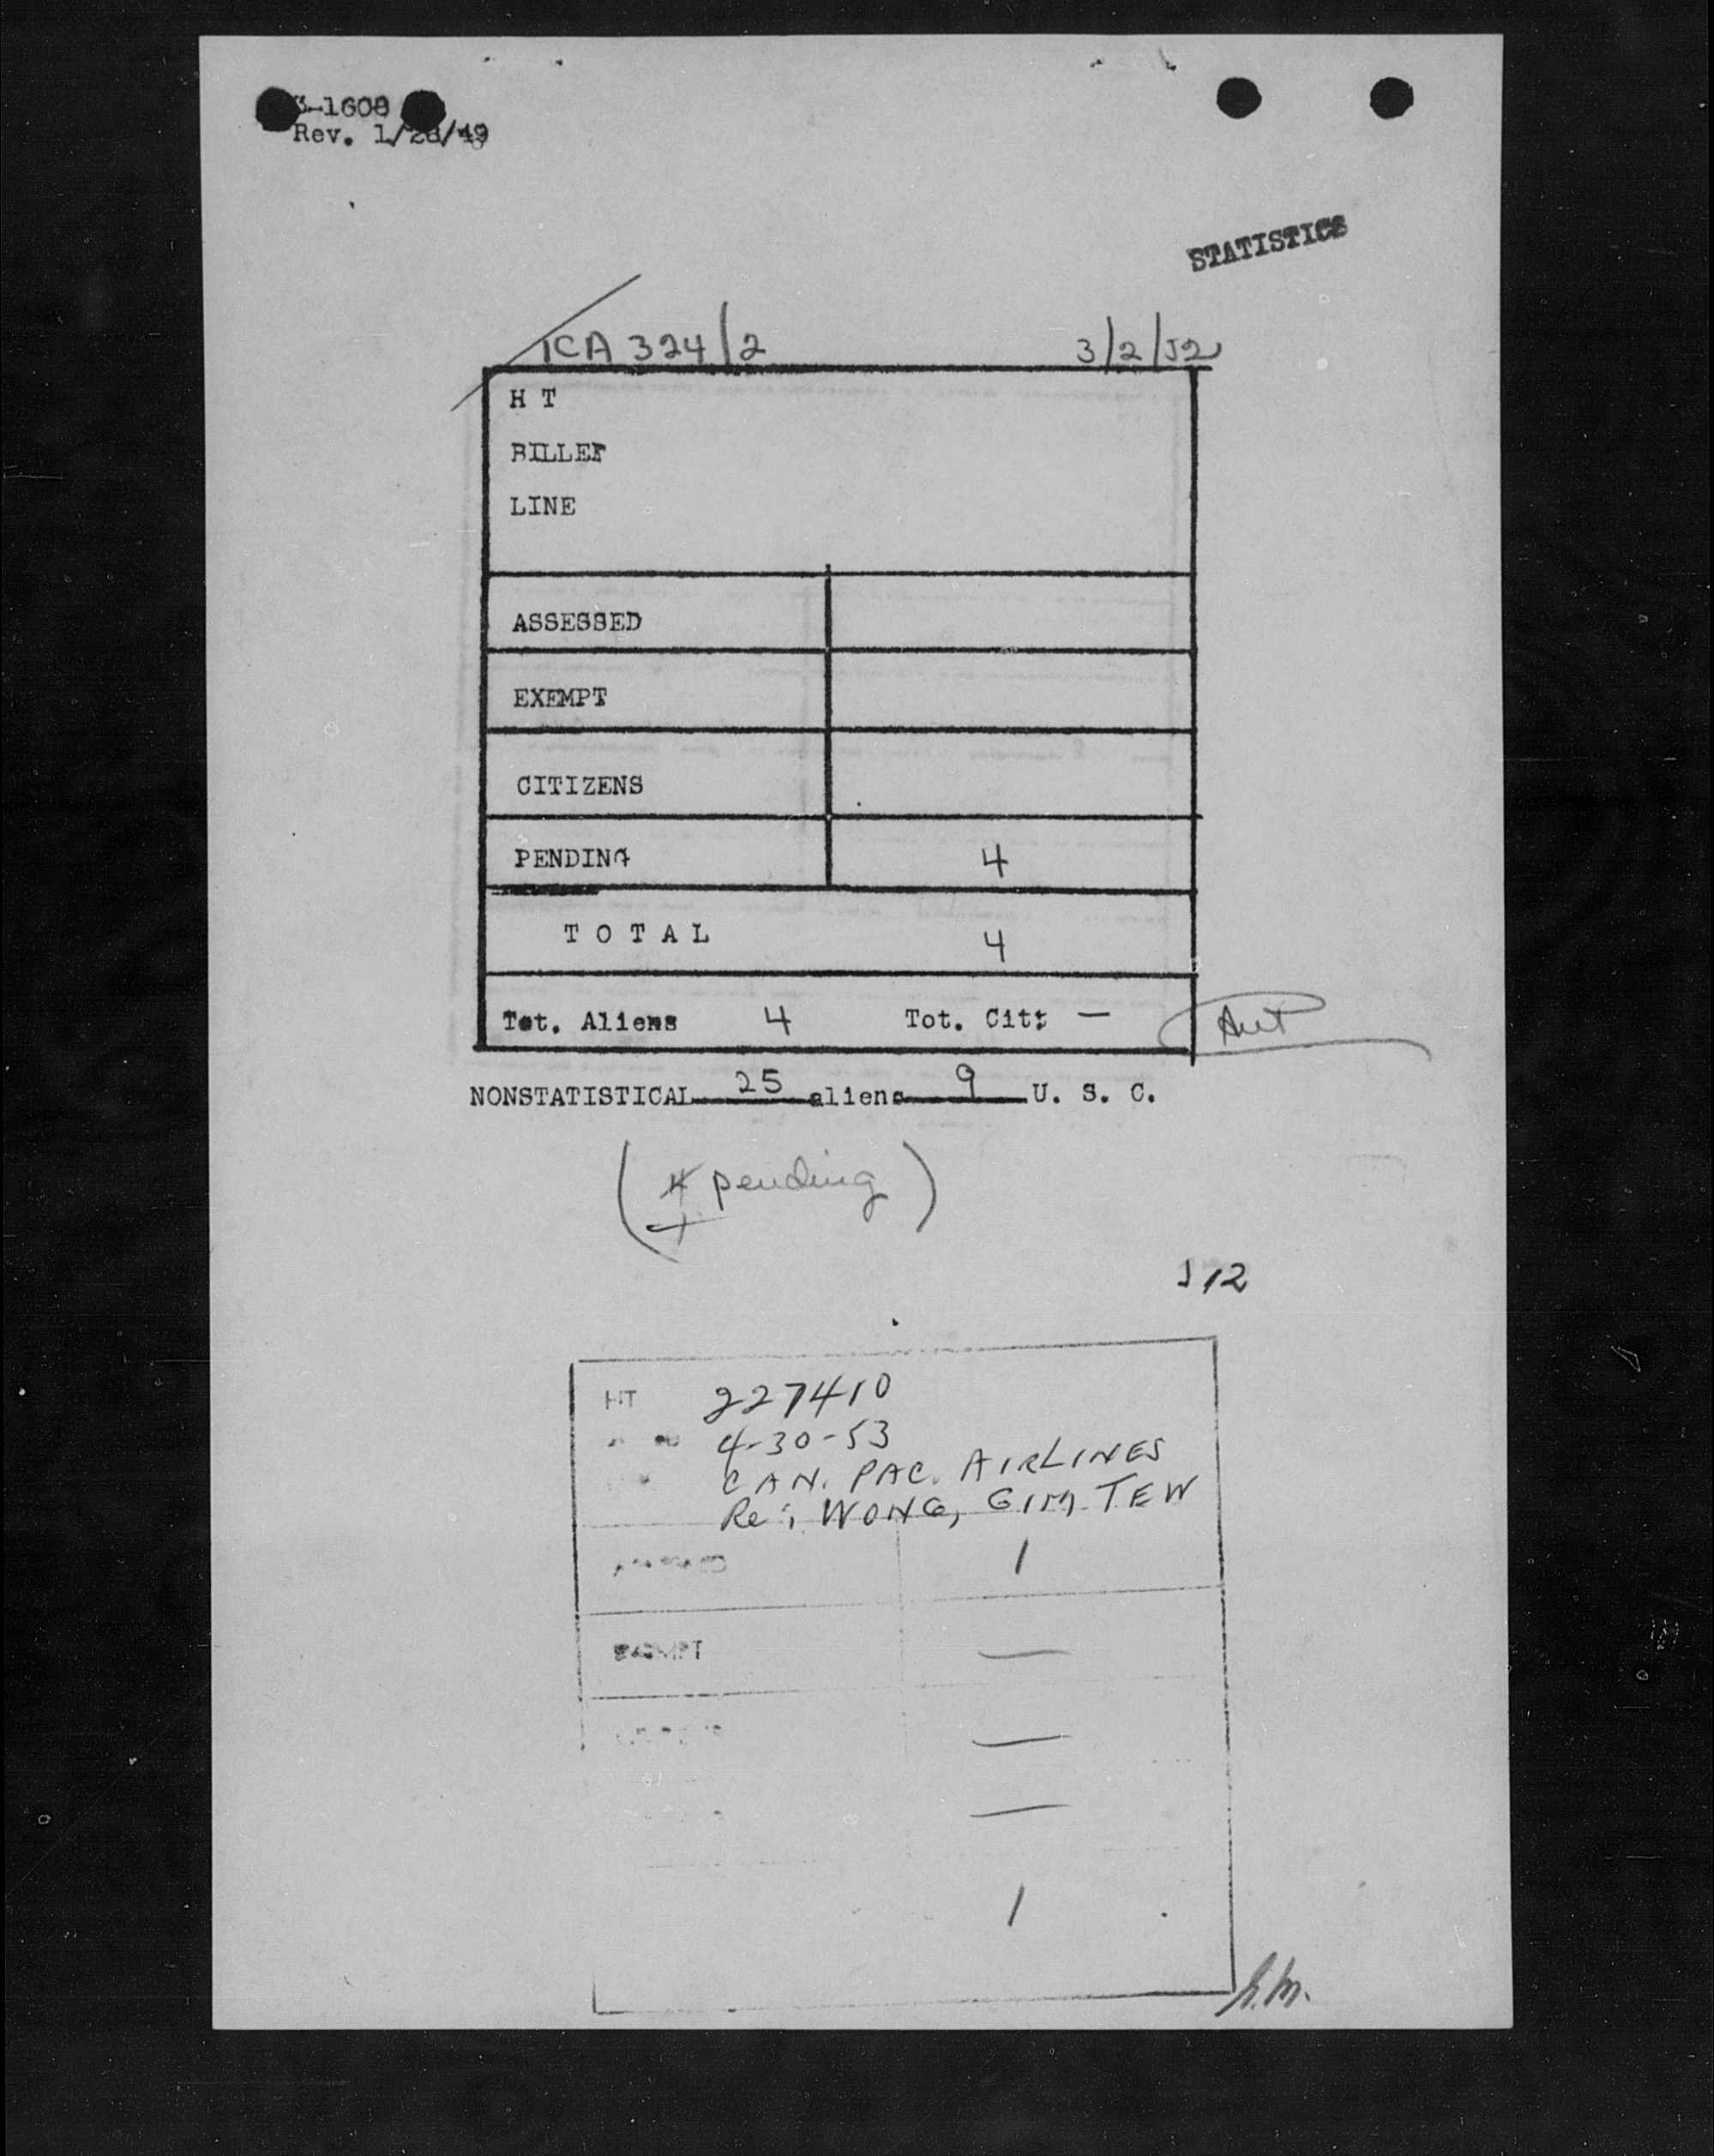 3-1608
Rev. 1/28/49
STATISTICS
CA 324/2 3/2/52
H T
BILLET
LINE
ASSESSED
EXEMPT
CITIZENS
PENDING 4
T O T A L 4
Tot. Aliens 4 Tot. Cit: —
NONSTATISTICAL 25 aliens 9 U. S. C.
( pending )
HT 227410
4-30-53
CAN. PAC. AIRLINES
Re: WONG, GIM TEW
1
EXEMPT —
—
—
1